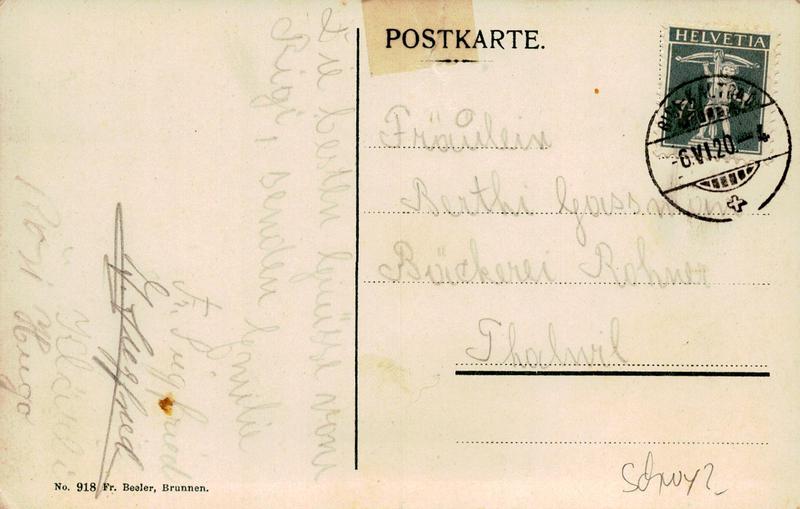 POSTKARTE.
HELVETIA
-6.VI.20.-4
Fräulein
Berthi Gassmann
Bäckerei Rohner
Thalwil
Die besten Grüsse vom
Rigi, senden Emilie
Fr. Siegfried
Rösi
Hugo
Schwyz
No. 918 Fr. Beeler, Brunnen.